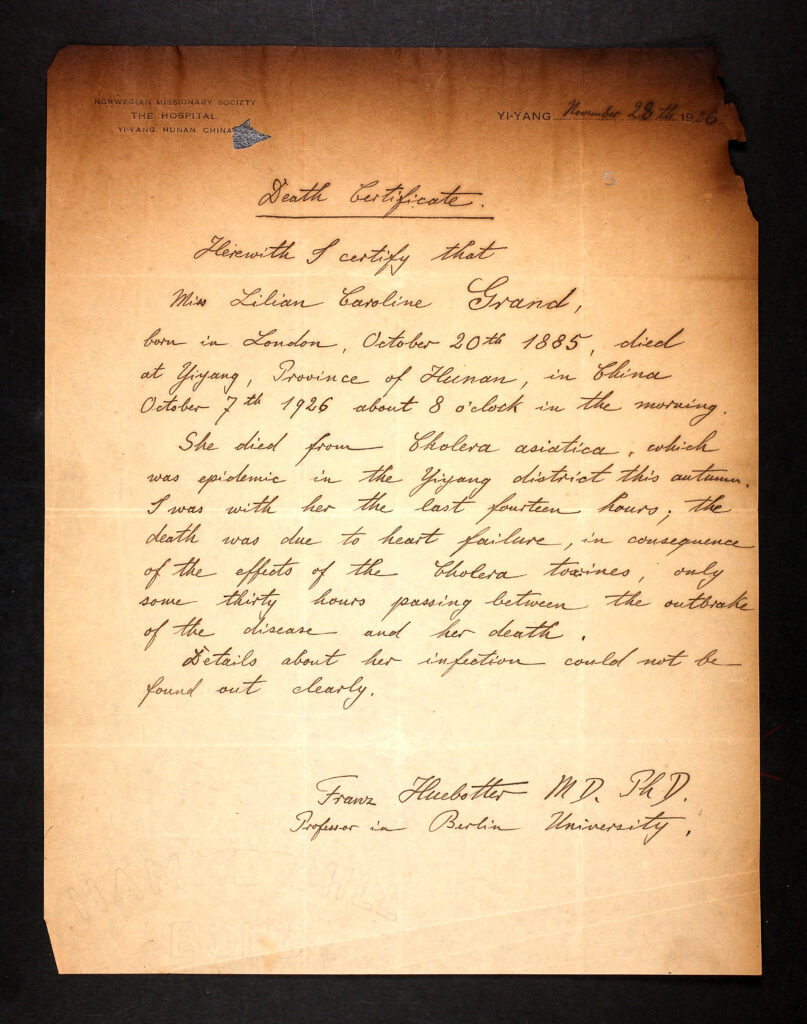 NORWEGIAN MISSIONARY SOCIETY
THE HOSPITAL
YI-YANG, HUNAN, CHINA
YI-YANG November 28th 1926.
Death Certificate.
Herewith I certify that
Miss Lilian Caroline Grand,
born in London, October 20th 1885, died
at Yiyang, Province of Hunan, in China
October 7th 1926 about 8 o'clock in the morning.
She died from Cholera asiatica, which
was epidemic in the Yiyang district this autumn.
I was with her the last fourteen hours; the
death was due to heart failure, in consequence
of the effects of the Cholera toxines, only
some thirty hours passing between the outbrake
of the disease and her death.
Details about her infection could not be
found out clearly.
Franz Huebotter MD. PhD.
Professor in Berlin University.
HAMMERMILL
BOND